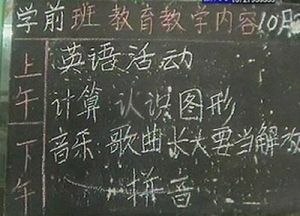 学前班教育教学内容10月
上午
英语活动
计算 认识图形
下午
音乐:歌曲长大要当解放
拼音